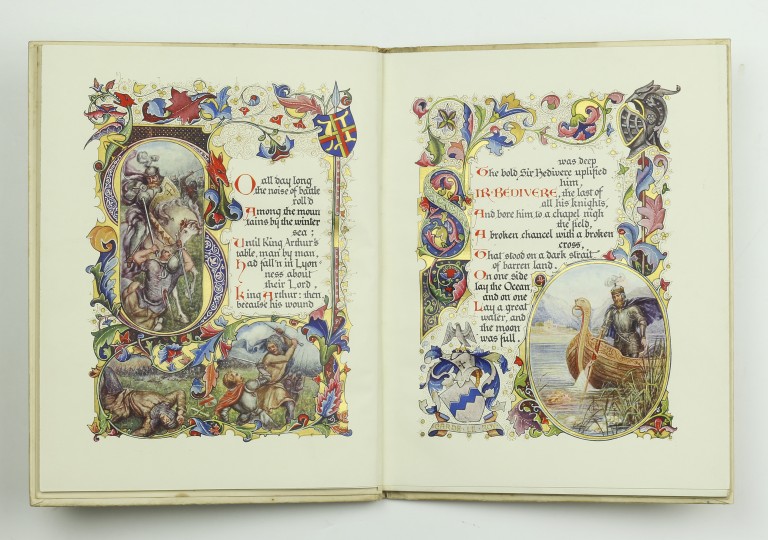 SO all day long
the noise of battle
roll'd
Among the moun
tains by the winter
sea :
Until King Arthur's
table, man by man,
had fall'n in Lyon
ness about
their Lord,
King Arthur: then,
because his wound
was deep
The bold Sir Bedivere uplifted
him,
SIR·BEDIVERE, the last of
all his knights,
And bore him to a chapel nigh
the field,
A broken chancel with a broken
cross,
That stood on a dark strait
of barren land.
On one side
lay the Ocean,
and on one
Lay a great
water, and
the moon
was full.